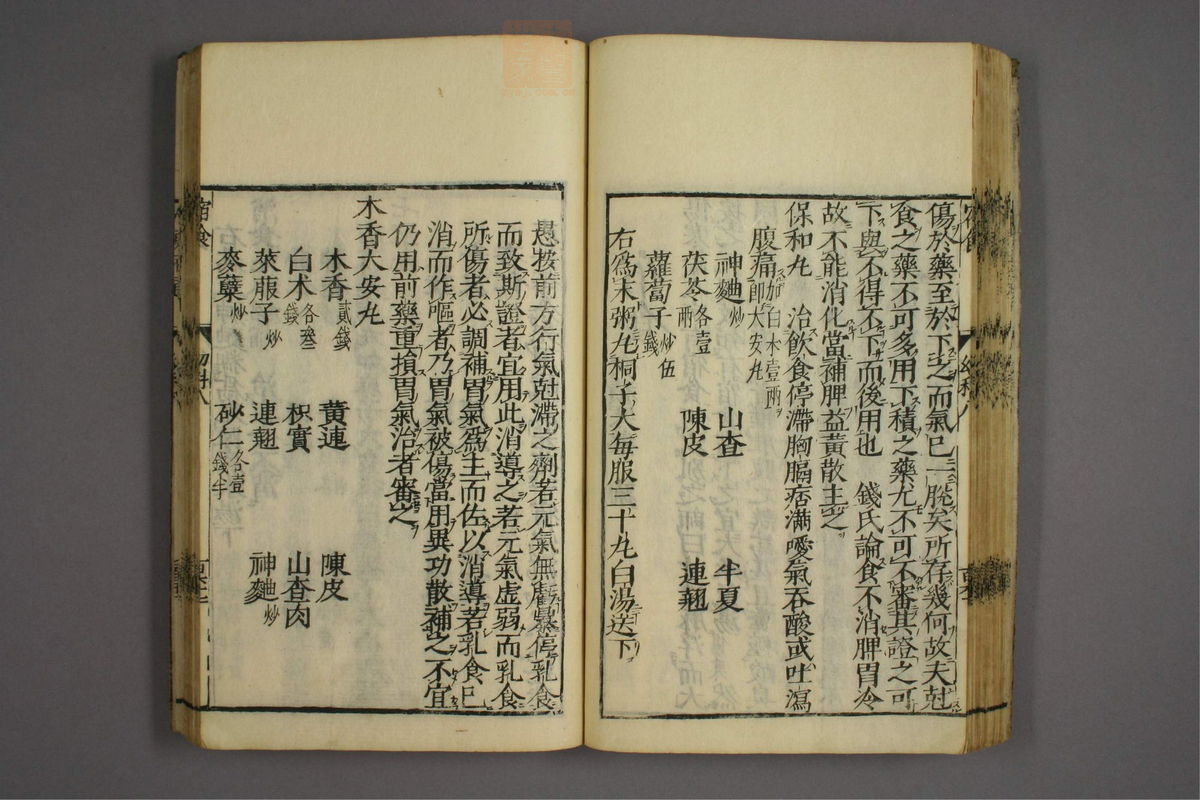 傷於藥至於下之而氣已一脫矣所存幾何故夫尅
食之藥不可多用下積之藥尤不可不審其證之可
下與不得不下而後用也 錢氏論食不消脾胃冷
故不能消化當補脾益黃散主之
保和丸 治飲食停滯胸膈痞滿噯氣吞酸或吐瀉
腹痛加白朮壹兩即大安丸
神麯炒 山查 半夏
茯苓各壹兩 陳皮 連翹
蘿蔔子炒伍錢
右爲末粥丸桐子大每服三十丸白湯送下
愚按前方行氣尅滯之劑若元氣無虧暴停乳食
而致斯證者宜用此消導之若元氣虛弱而乳食
所傷者必調補胃氣爲主而佐以消導若乳食已
消而作嘔者乃胃氣被傷當用異功散補之不宜
仍用前藥重損胃氣治者審之
木香大安丸
木香貳錢 黃連 陳皮
白朮各叁錢 枳實 山查肉
萊菔子炒 連翹 神麯炒
麥蘗炒 砂仁各壹錢半
宿食 幼科八